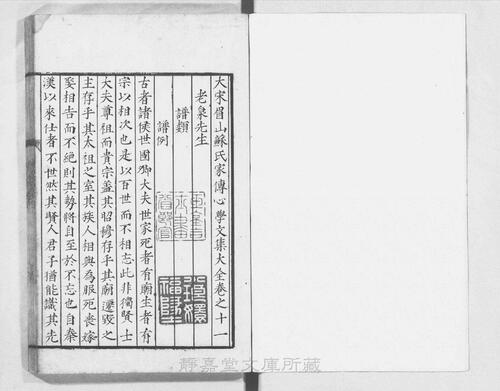 大宋眉山蘇氏家傳心學文集大全卷之十一
老泉先生
譜類
譜例
古者諸侯世國卿大夫世家死者有廟生者有
宗以相次也是以百世而不相忘此非獨賢士
大夫尊祖而貴宗蓋其昭穆存乎其廟遷毀之
主存乎其太祖之室其族人相與為服死喪嫁
娶相告而不絶則其勢將自至於不忘也自秦
漢以來仕者不世然其賢人君子猶能識其先
靜嘉堂文庫所藏